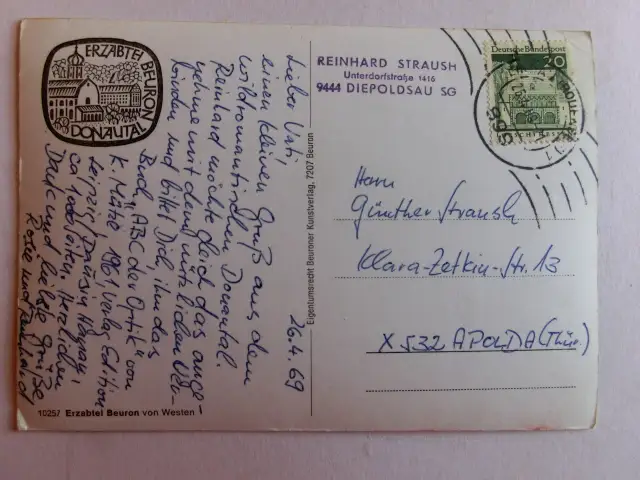 ERZABTEI BEURON
DONAUTAL
26.4.69
Lieber Vati
einen kleinen Gruß aus dem
wildromantischen Donautal.
Reinhard möchte gleich das ange-
nehme mit dem nützlichen ver-
binden und bittet Dich, ihm das
Buch "ABC der Optik" von
K. Mütze 1961, Verlag Edition
Leipzig
ca 1000 Seiten, Herzlichen
Dank und liebe Grüße
und Reinhard
10257 Erzabtei Beuron von Westen
Eigentumsrecht Beuroner Kunstverlag, 7207 Beuron
REINHARD STRAUSH
Unterdorfstraße 1416
9444 DIEPOLDSAU SG
Deutsche Bundespost
20
LORSCH/HESSEN
Herrn
Günther Straush
Klara-Zetkin-Str. 13
X 532 APOLDA (Thür.)